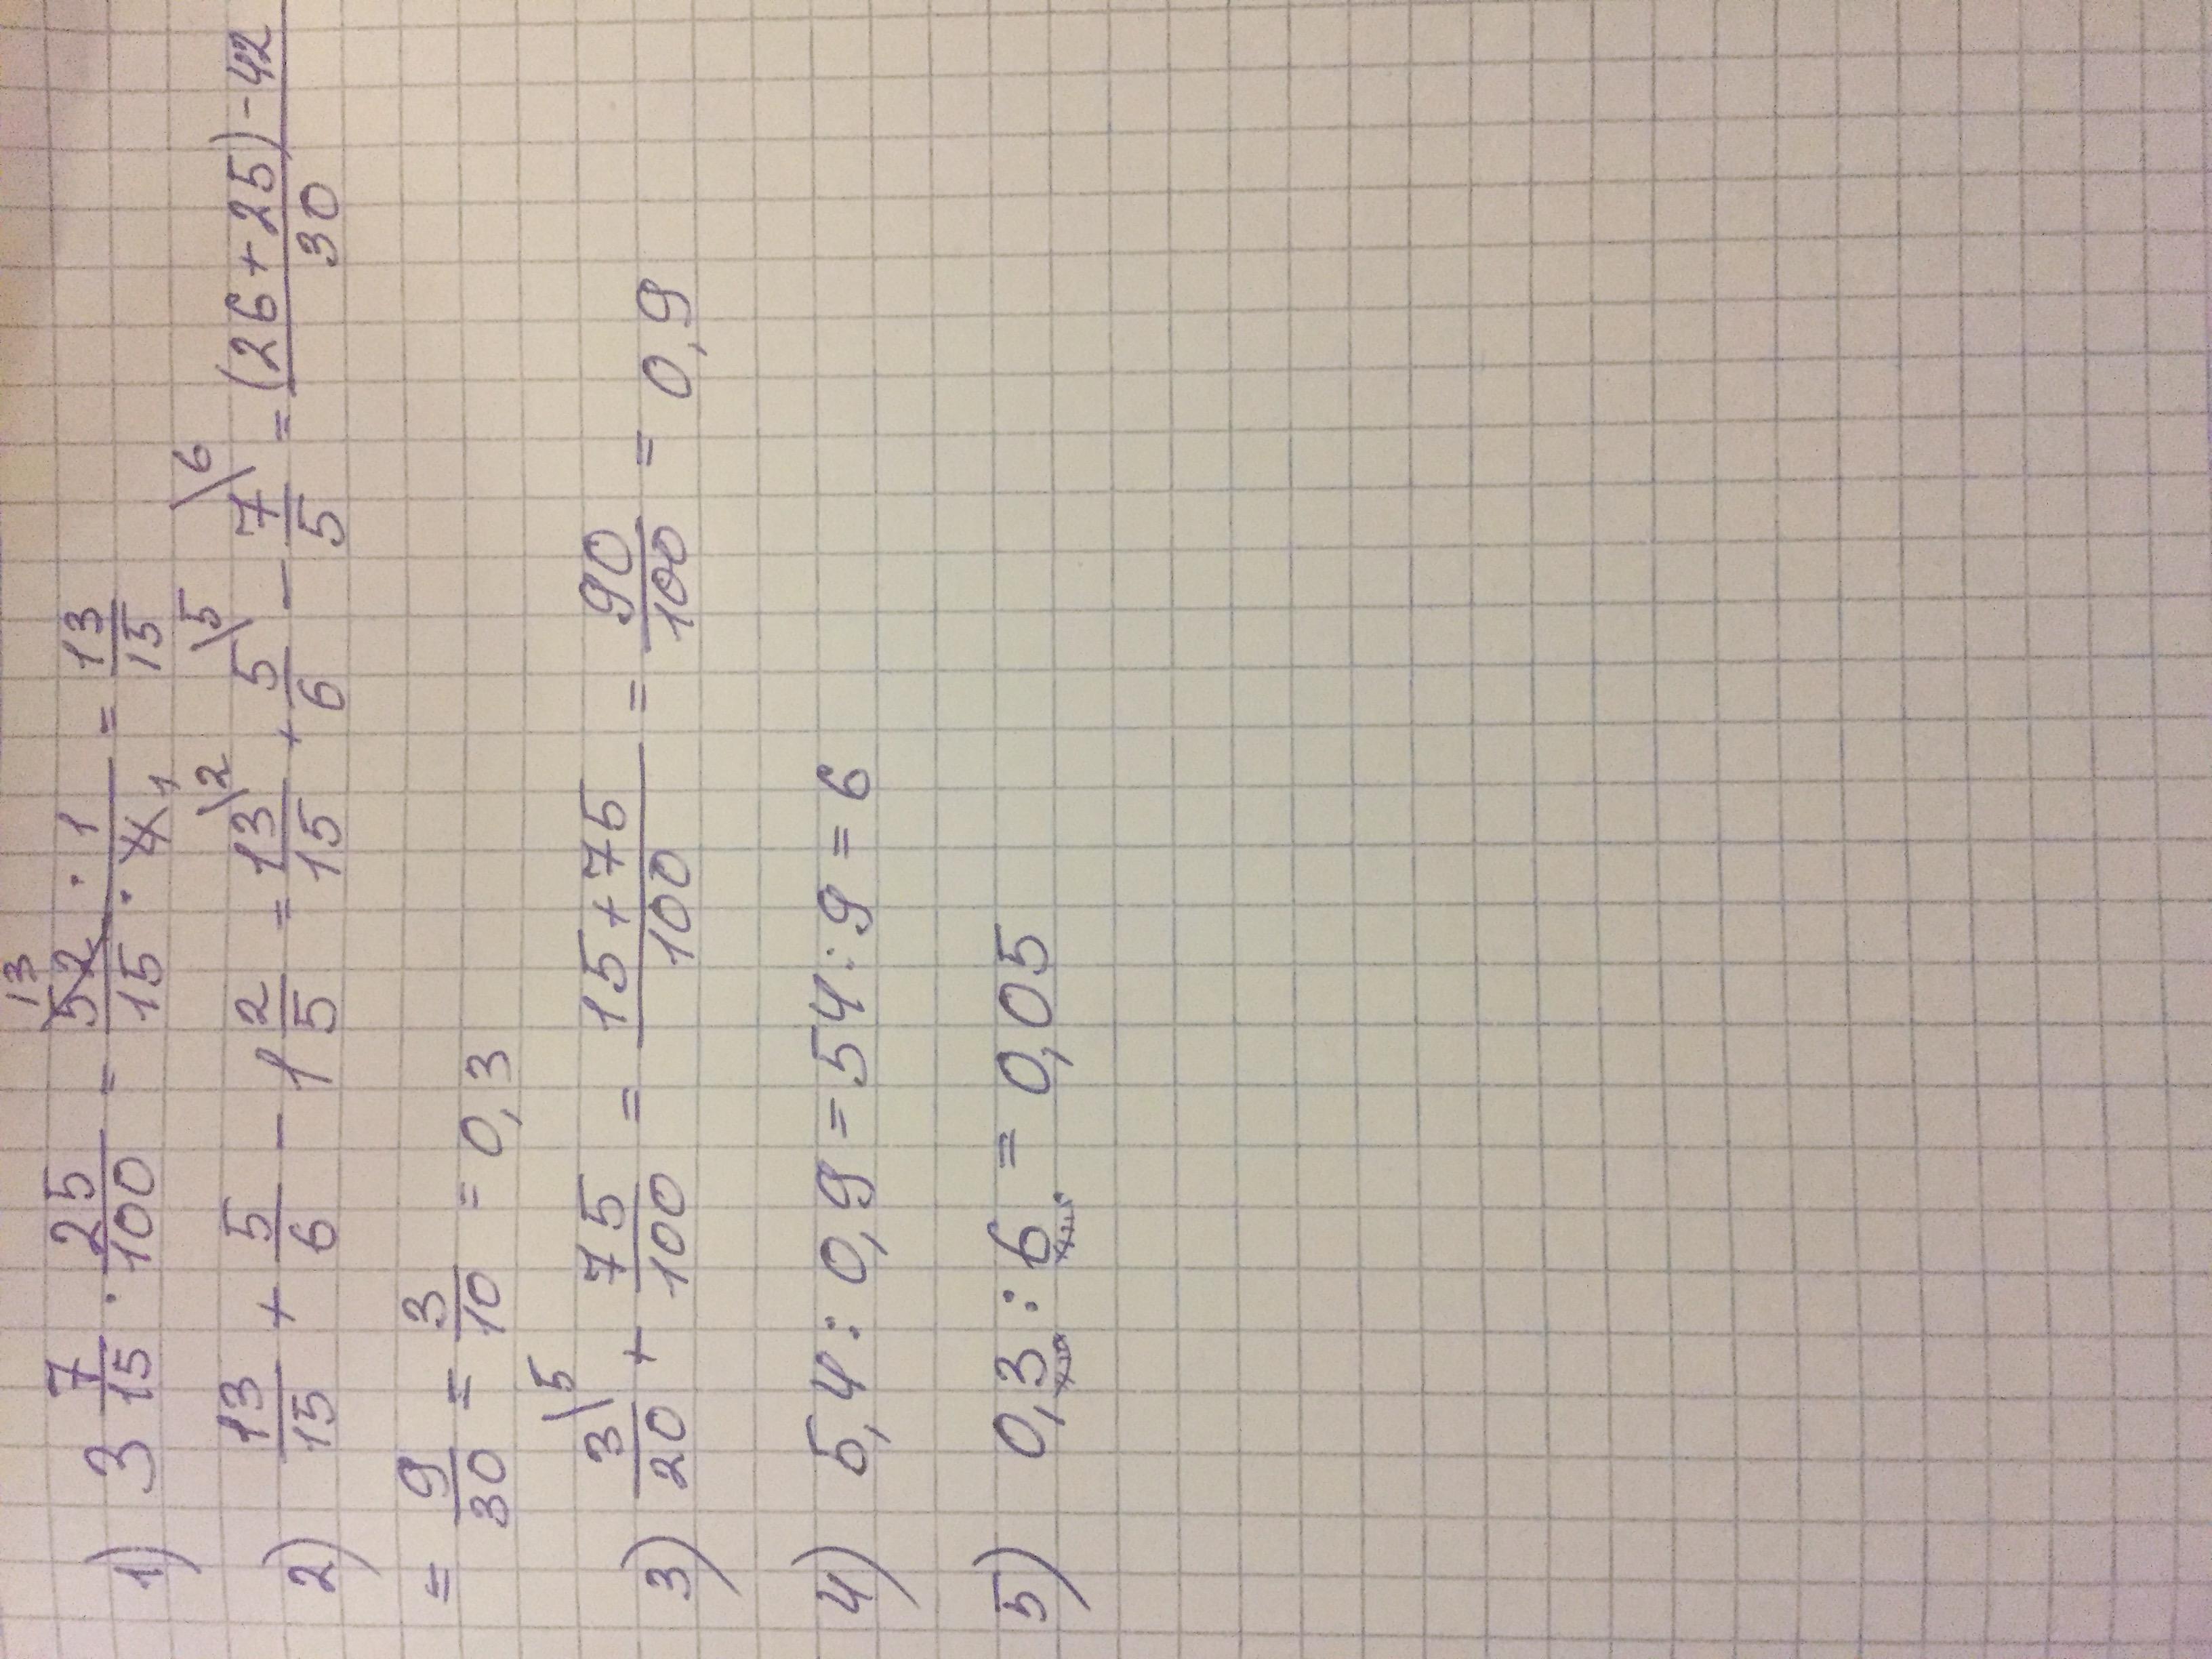 1) 3 7/15 · 25/100 = 52 13 · 1 / 15 · 4 1 = 13/15
2) 13/15 + 5/6 - 1 2/5 = 13/15 \2 + 5/6 \5 - 7/5 \6 = (26+25)-42 / 30
= 9/30 = 3/10 = 0,3
3) 3/20 \5 + 75/100 = 15+75 / 100 = 90/100 = 0,9
4) 5,4 : 0,9 = 54 : 9 = 6
5) 0,3 : 6 = 0,05